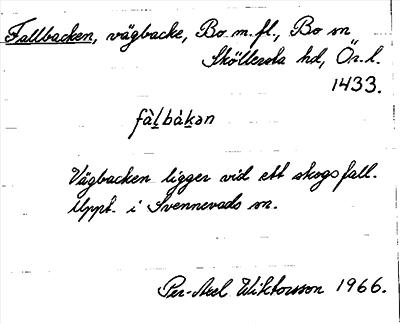 Fallbacken, vägbacke, Bo m.fl., Bo sn
Sköllersta hd, Ör. l.
1433.
fàl̲bàk̲ən
Vägbacken ligger vid ett skogsfall.
Uppt. i Svennevads sn.
Per-Axel Wiktorsson 1966.